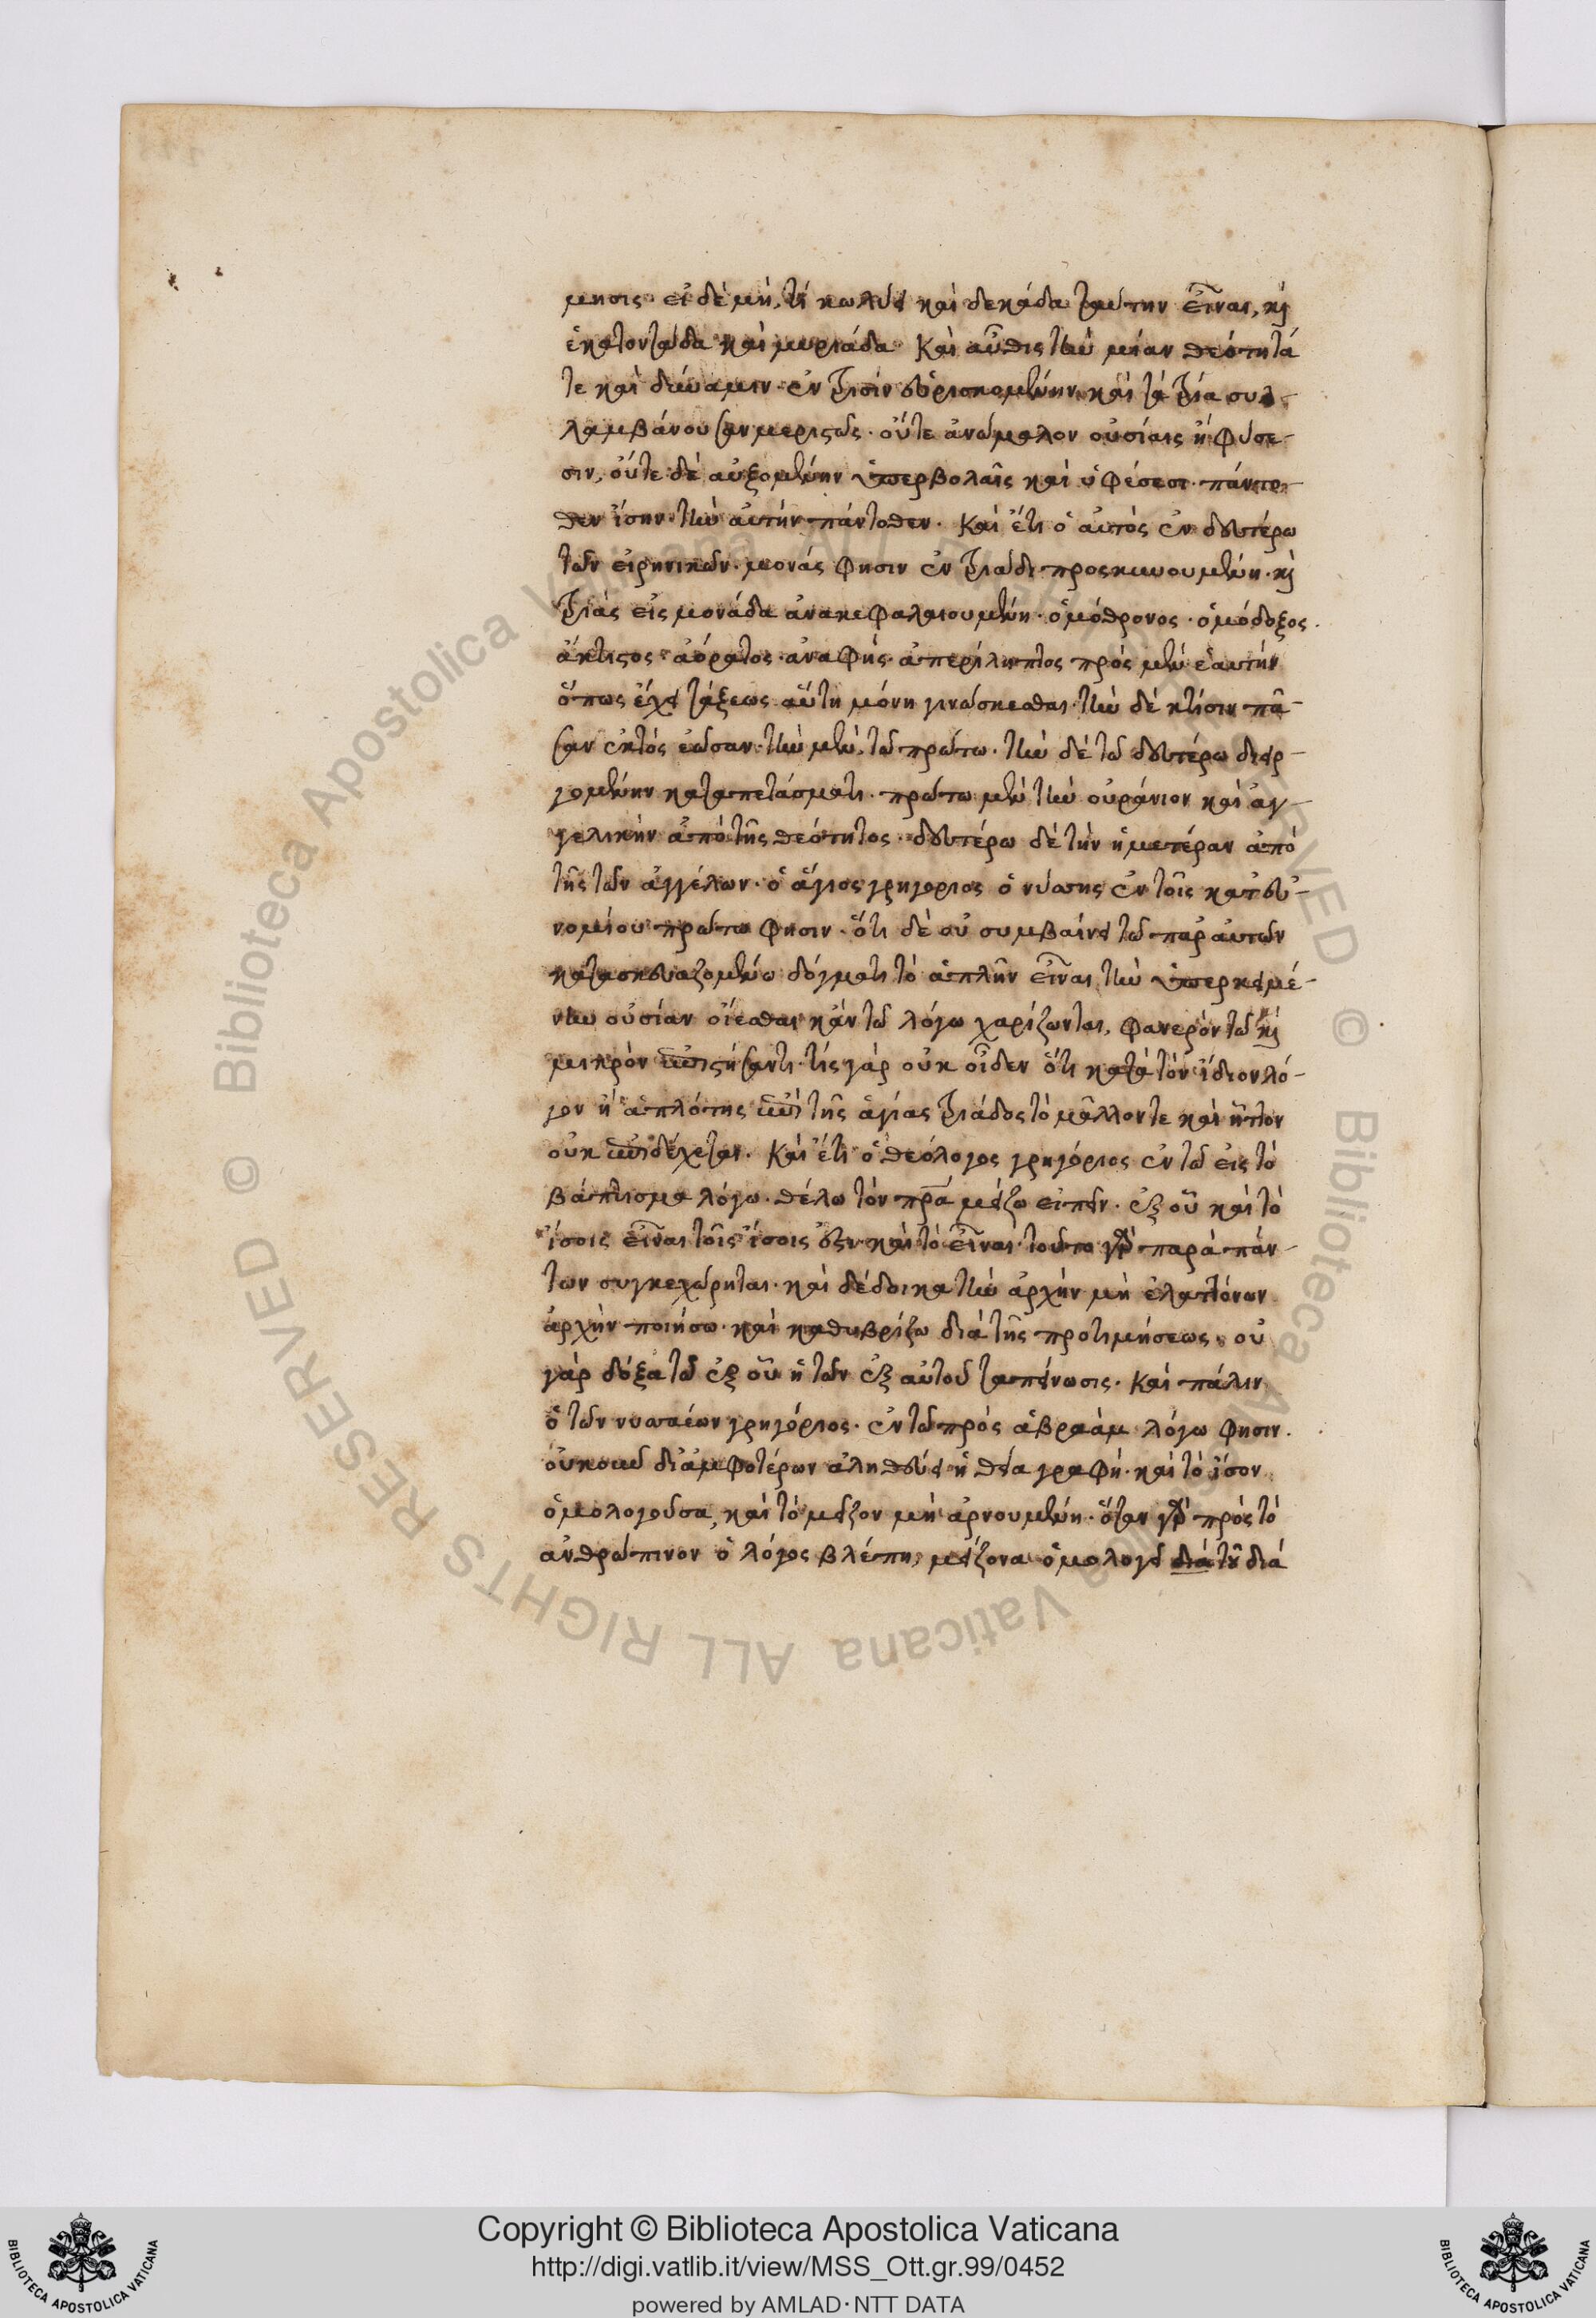 μησις· εἰ δὲ μή, τί κωλύει καὶ δεκάδα ταύτην εἶναι, καὶ
ἑκατοντάδα καὶ μυριάδα· Καὶ αὖθις τὴν μίαν θεότητά
τε καὶ δύναμιν· ἐν τρισὶν εὑρισκομένην καὶ τὰ τρία συλ-
λαμβάνουσαν μεριστῶς· οὔτε ἀνώμαλον οὐσίαις ἢ φύσε-
σιν, οὔτε δὲ αὐξομένην ὑπερβολαῖς καὶ ὑφέσεσι· πάντο-
θεν ἴσην· τὴν αὐτὴν πάντοθεν. Καὶ ἔτι ὁ αὐτὸς ἐν δευτέρω
τῶν εἰρηνικῶν· μονάς φησιν ἐν τριάδι προσκυνουμένη· καὶ
τριὰς εἰς μονάδα ἀνακεφαλαιουμένη· ὁμόθρονος· ὁμόδοξος·
ἄκτιστος· ἀόρατος· ἀναφής· ἀπερίληπτος πρὸς μὲν ἑαυτὴν
ὅπως ἔχει τάξεως αὕτη μόνη γινώσκεσθαι· τὴν δὲ κτίσιν πᾶ-
σαν ἐκτὸς ἐῶσαν· τὴν μὲν, τῶ πρώτω· τὴν δὲ τῶ δευτέρω διειρ-
γομένην καταπετάσματι· πρώτω μὲν τὴν οὐράνιον καὶ ἀγ-
γελικὴν ἀπὸ τῆς θεότητος· δευτέρω δὲ τὴν ἡμετέραν ἀπὸ
τῆς τῶν ἀγγέλων· ὁ ἅγιος γρηγόριος ὁ νύσσης ἐν τοῖς κατ' εὐ-
νομίου πρώτω φησιν· ὅτι δὲ οὐ συμβαίνει τῶ παρ' αὐτῶν
κατασκευαζομένω δόγματι τὸ ἁπλῆν εἶναι τὴν ὑπερκειμέ-
νην οὐσίαν οἴεσθαι κἂν τῶ λόγω χαρίζωνται, φανερὸν τῶ καὶ
μικρὸν ἐπιστήσαντι· τίς γὰρ οὐκ οἶδεν ὅτι κατὰ τὸν ἴδιον λό-
γον ἡ ἁπλότης ἐπὶ τῆς ἁγίας τριάδος τὸ μᾶλλον τε καὶ ἧττον
οὐκ ἐπιδέχεται. Καὶ ἔτι ὁ θεόλογος γρηγόριος ἐν τῶ εἰς τὸ
βάπτισμα λόγω· θέλω τὸν πρα μείζω εἰπεῖν· ἐξ οὗ καὶ τὸ
ἴσοις εἶναι τοῖς ἴσοις ἐστὶν· καὶ τὸ εἶναι· τοῦτο γὰρ παρὰ πάν-
των συγκεχώρηται· καὶ δέδοικα τὴν ἀρχὴν μὴ ἐλαττόνων
ἀρχὴν ποιήσω· καὶ καθυβρίζω διὰ τῆς προτιμήσεως· οὐ
γὰρ δόξα τῶ ἐξ οὗ ἡ τῶν ἐξ αὐτοῦ ταπείνωσις. Καὶ πάλιν
ὁ τῶν νυσσαέων γρηγόριος· ἐν τῶ πρὸς ἀβραὰμ λόγω φησιν·
οὐκοῦν δι' ἀμφοτέρων ἀληθεύει ἡ θεία γραφή· καὶ τὸ ἴσον
ὁμολογοῦσα, καὶ τὸ μεῖζον μὴ ἀρνουμένη· ὅταν γὰρ πρὸς τὸ
ἀνθρώπινον ὁ λόγος βλέπη, μείζονα ὁμολογεῖ διὰ τοῦ διὰ
Copyright © Biblioteca Apostolica Vaticana
http://digi.vatlib.it/view/MSS_Ott.gr.99/0452
powered by AMLAD·NTT DATA
BIBLIOTECA APOSTOLICA VATICANA
BIBLIOTECA APOSTOLICA VATICANA
© Biblioteca Apostolica Vaticana ALL RIGHTS RESERVED © Biblioteca Apostolica Vaticana ALL RIGHTS RESERVED